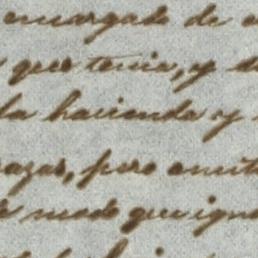 encargado de
que tenia, y de
la hacienda y
razas, pero omit
modo que igno